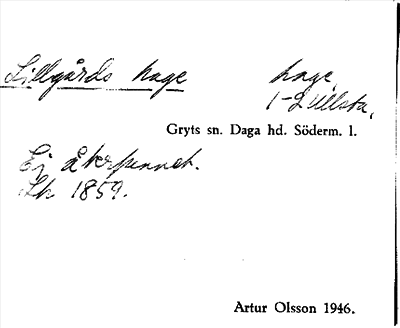 Lillgårds hage hage
1-2 Ullsta,
Gryts sn. Daga hd. Söderm. l.
Ej återfunnet.
Lh 1859.
Artur Olsson 1946.